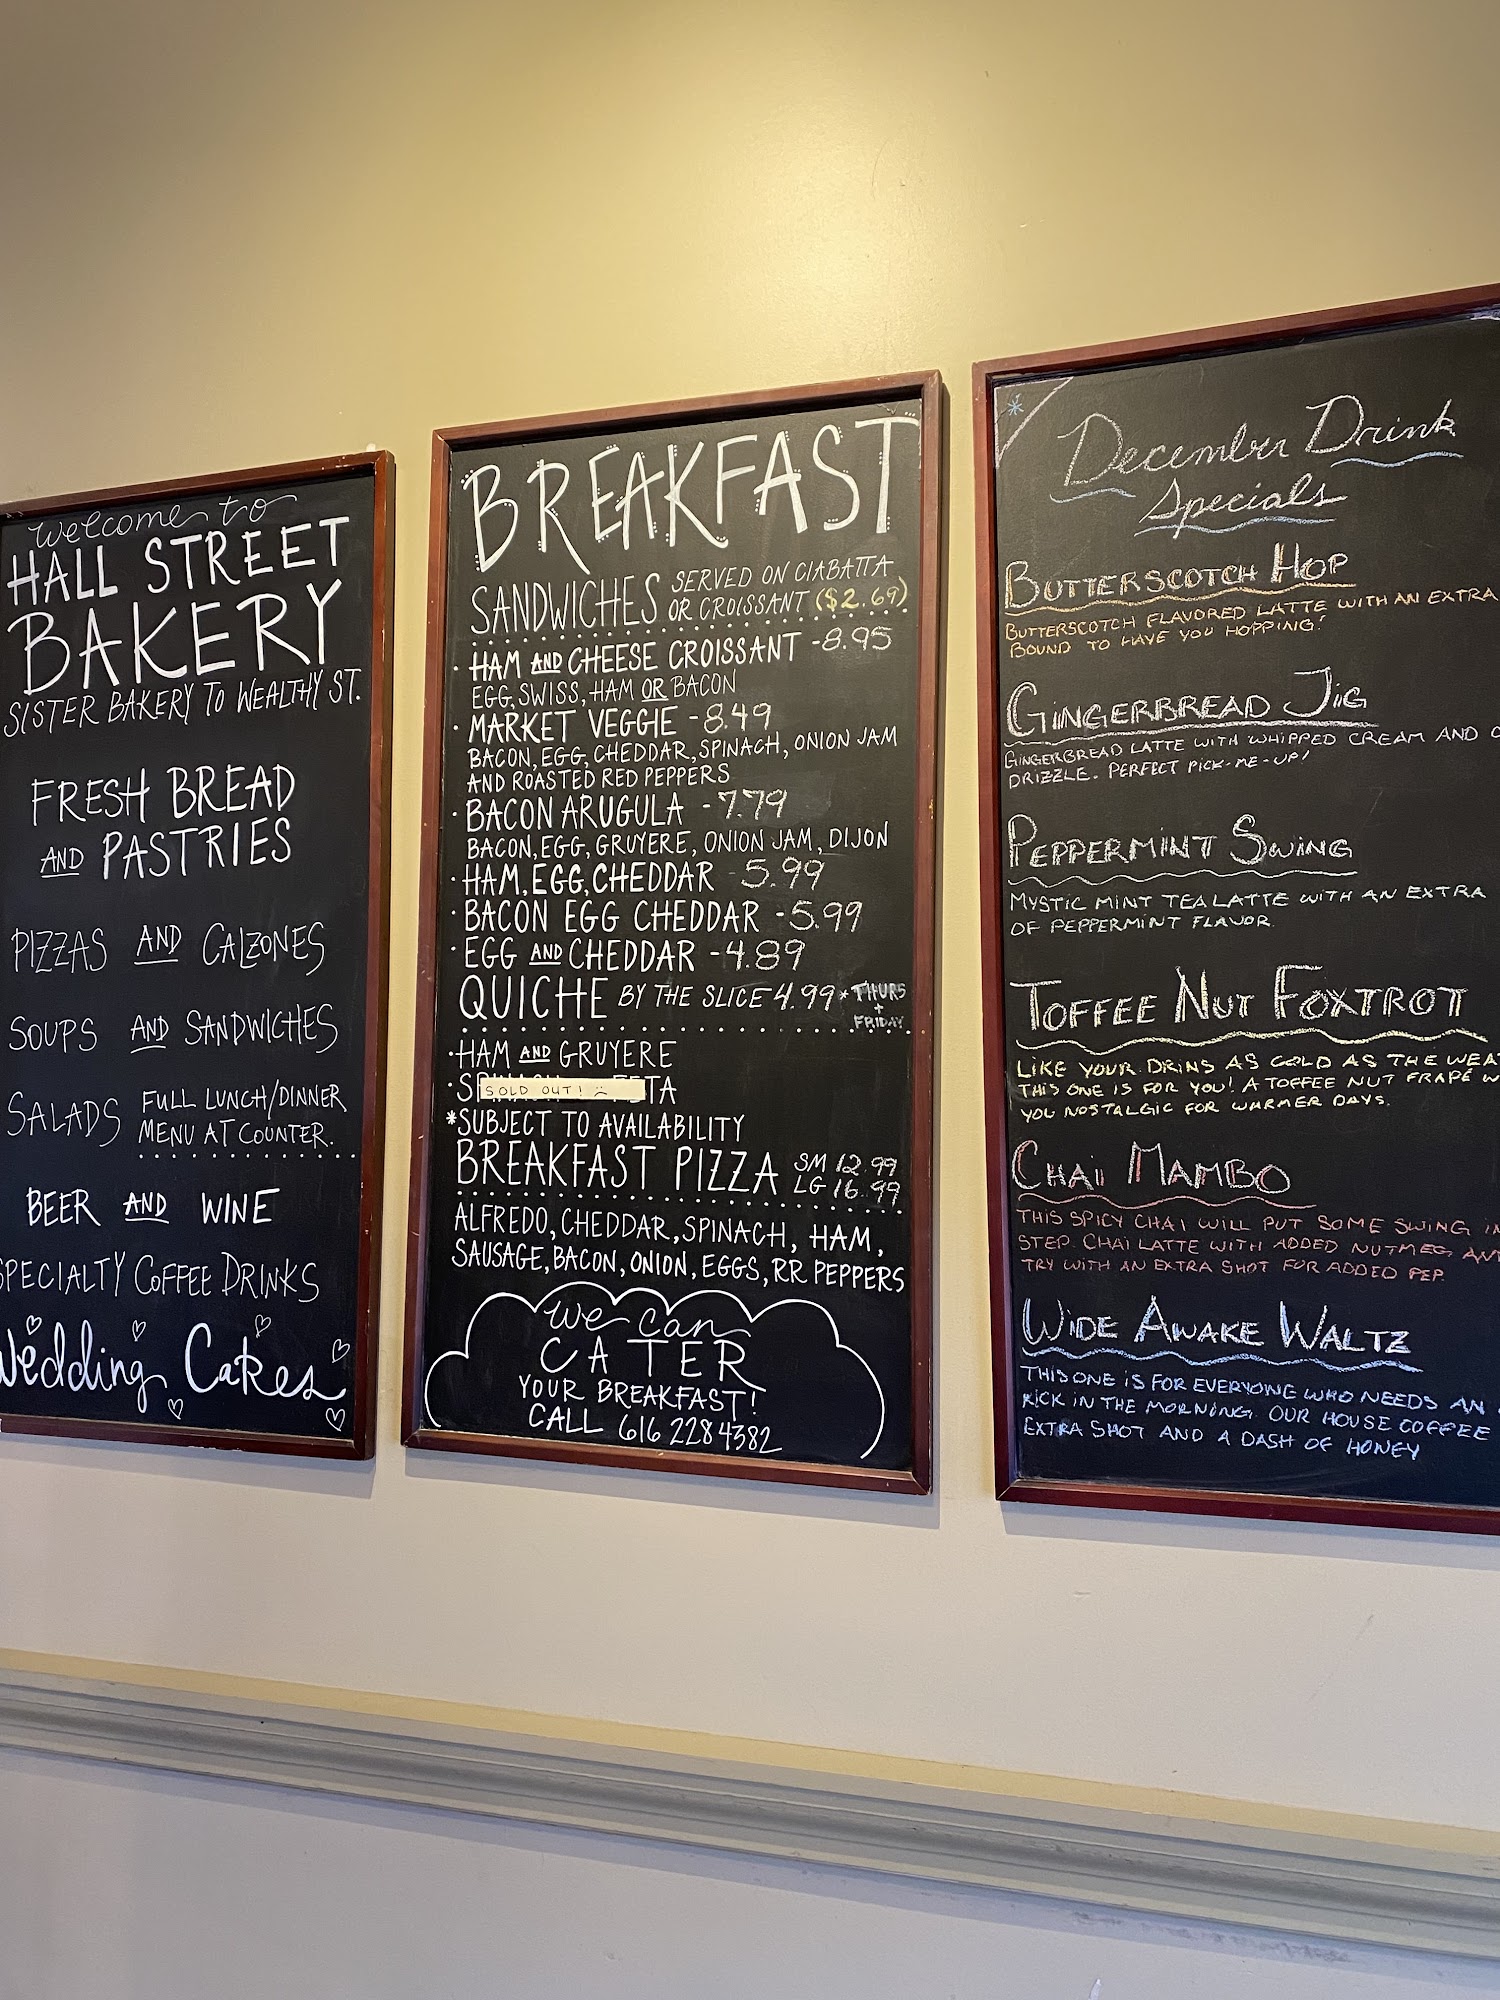 Welcome to
HALL STREET
BAKERY
SISTER BAKERY TO WEALTHY ST.
FRESH BREAD
AND PASTRIES
PIZZAS AND CALZONES
SOUPS AND SANDWICHES
SALADS FULL LUNCH/DINNER
MENU AT COUNTER.
BEER AND WINE
SPECIALTY COFFEE DRINKS
Wedding Cakes
BREAKFAST
SANDWICHES SERVED ON CIABATTA
OR CROISSANT ($2.69)
· HAM AND CHEESE CROISSANT -8.95
EGG, SWISS, HAM OR BACON
· MARKET VEGGIE -8.49
BACON, EGG, CHEDDAR, SPINACH, ONION JAM
AND ROASTED RED PEPPERS
· BACON ARUGULA -7.79
BACON, EGG, GRUYERE, ONION JAM, DIJON
· HAM, EGG, CHEDDAR - 5.99
· BACON EGG CHEDDAR -5.99
· EGG AND CHEDDAR -4.89
QUICHE BY THE SLICE 4.99 * THURS
+
FRIDAY
· HAM AND GRUYERE
SOLD OUT! :(
*SUBJECT TO AVAILABILITY
BREAKFAST PIZZA SM 12.99
LG 16.99
ALFREDO, CHEDDAR, SPINACH, HAM,
SAUSAGE, BACON, ONION, EGGS, RR PEPPERS
We can
CATER
YOUR BREAKFAST!
CALL 616 228 4382
December Drink
Specials
BUTTERSCOTCH HOP
BUTTERSCOTCH FLAVORED LATTE WITH AN EXTRA
BOUND TO HAVE YOU HOPPING!
GINGERBREAD JIG
GINGERBREAD LATTE WITH WHIPPED CREAM AND
DRIZZLE. PERFECT PICK-ME-UP!
PEPPERMINT SWING
MYSTIC MINT TEA LATTE WITH AN EXTRA
OF PEPPERMINT FLAVOR.
TOFFEE NUT FOXTROT
LIKE YOUR DRINS AS COLD AS THE
THIS ONE IS FOR YOU! A TOFFEE NUT FRAPÉ
YOU NOSTALGIC FOR WARMER DAYS.
CHAI MAMBO
THIS SPICY CHAI WILL PUT SOME SWING
STEP. CHAI LATTE WITH ADDED NUTMEG
TRY WITH AN EXTRA SHOT FOR ADDED PEP.
WIDE AWAKE WALTZ
THIS ONE IS FOR EVERYONE WHO NEEDS AN
KICK IN THE MORNING. OUR HOUSE COFFEE
EXTRA SHOT AND A DASH OF HONEY